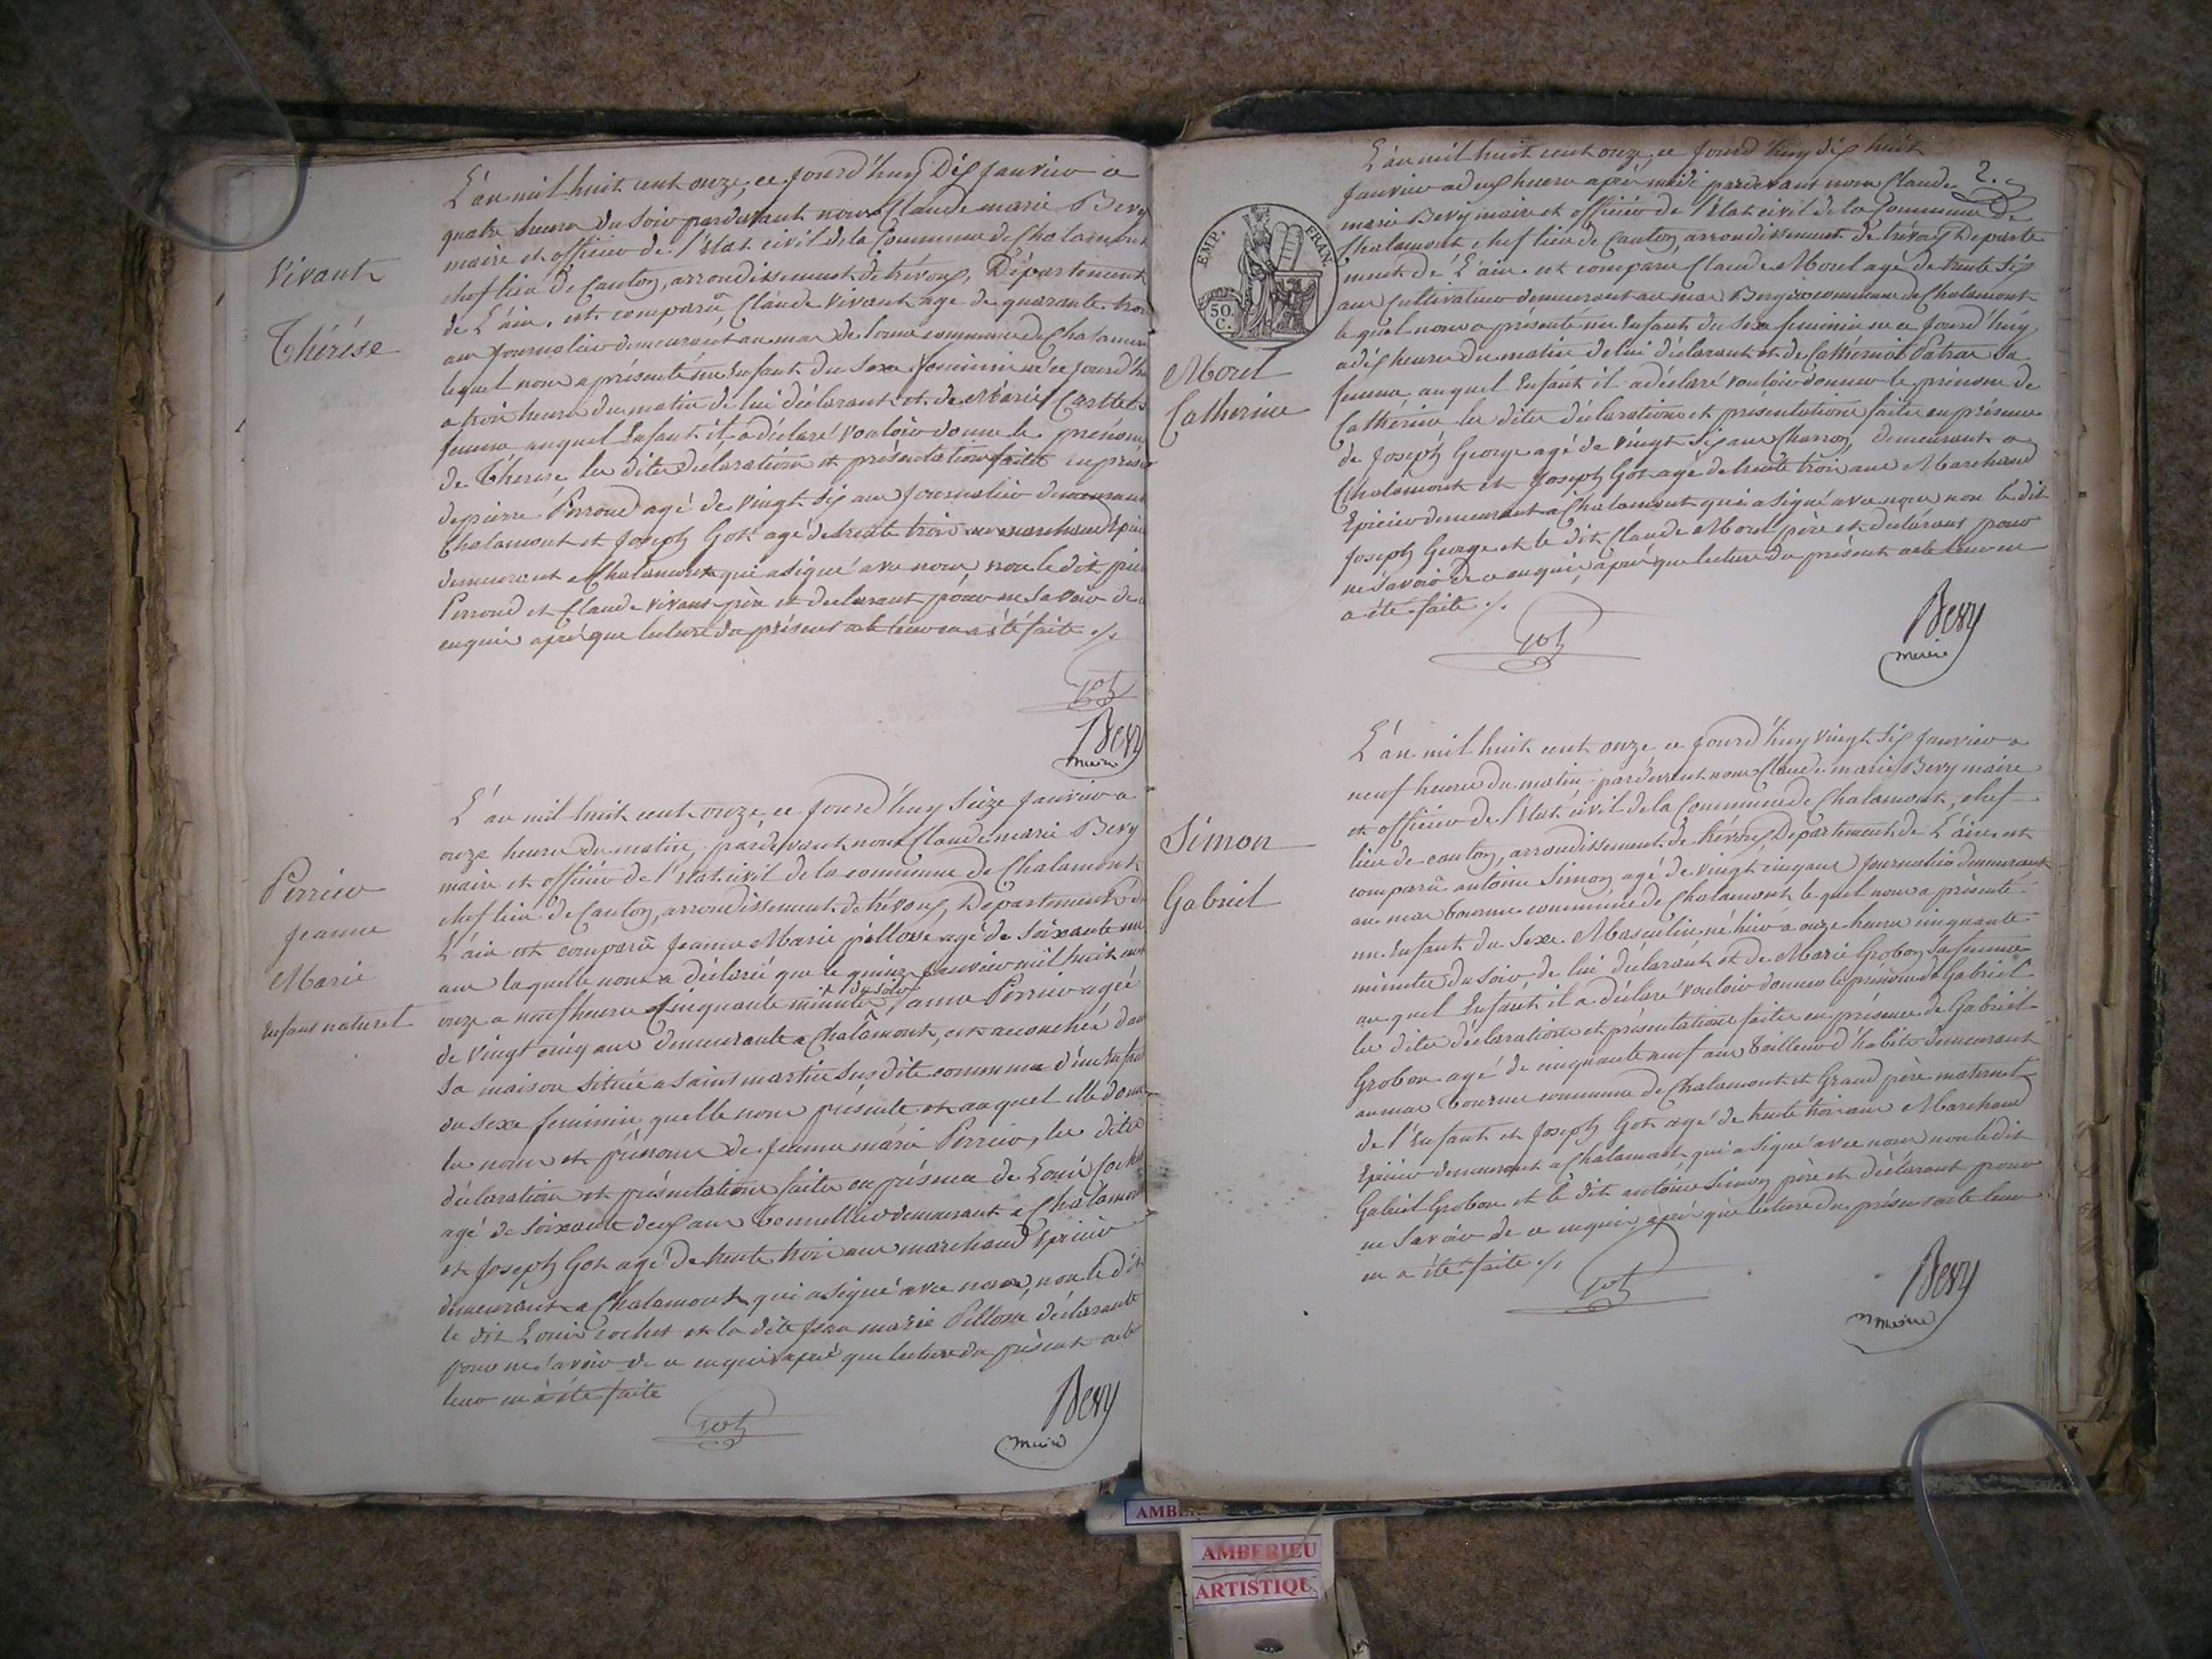 Vivant
Thérése
L'an mil huit cent onze, ce jourd'huy dix janvier a
quatre heures du soir pardevant nous Claude marie Bevy
maire et officier de l'état civil de la Commune de Chalamont
chef lieu de Canton, arrondissement de trévoux, Département
de L'ain, est comparû Claude Vivant agé de quarante trois
ans journalier demeurant au mas de commune de Chalamont
lequel nous a présenté un Enfant du Sexe feminin né ce jourd'huy
a trois heures du matin de lui déclarant et de Marie
femme, auquel Enfant il a déclaré vouloir donner le prénom
de Thérese les dites déclaration et présentation faites en présence
de pierre Perroud agé de vingt six ans journalier demeurant
Chalamont et Joseph Got agé de trente trois ans marchand Epicier
demeurant a Chalamont qui a signé avec nous non le dit pierre
Perroud et Claude vivant père et declarant pour ne savoir de ce
enquis après que lecture du présent acte leur en a été faite ./.
Got
Bevy
maire
Perrier
jeanne
Marie
Enfant naturel
L'an mil huit cent onze, ce jourd'huy Seize janvier a
onze heures du matin, pardevant nous Claude marie Bevy
maire et officier de l'état civil de la commune de Chalamont
chef lieu de Canton, arrondissement de trévoux, Département de
L'ain est comparû jeanne Marie pellosse agé de soixante un
ans laquelle nous a déclaré que le quinze janvier mil huit cent
onze a neuf heures cinquante minutes du soir, anne Perrier agée
de vingt cinq ans demeurante a Chalâmont, est accouchée dans
sa maison située a saint martin susdite commune d'un Enfant
du sexe feminin quelle nous présente et auquel elle donne
les noms et prénoms de jeanne marie Perrier, les dites
déclaration et présentation faites en présence de Louis Cochet
agé de soixante deux ans tonnellier demeurant a Chalamont
et Joseph Got agé de trente trois ans marchand Epicier
demeurant a Chalamont qui a signé avec nous, non le dit
le dit Louis cochet et la dite jean marie Pellosse déclarante
pour ne savoir de ce enquis après que lecture du présent acte
leur en a été faite
Got
Bevy
maire
2.
EMP. FRAN
50. C.
Morel
Catherine
L'an mil huit cent onze, ce jourd'huy dix huit
janvier a deux heures après midi pardevant nous Claude
marie Bevy maire et officier de l'état civil de la Commune de
Chalamont chef lieu de Canton, arrondissement de trévoux Departe
ment de L'ain est comparu Claude Morel agé de trente six
ans Cultivateur demeurant au mas commune de Chalamont
lequel nous a présenté un Enfant du Sexe feminin né ce jourd'huy
a dix heures du matin de lui déclarant et de Catherine Patras sa
femme, auquel Enfant il a déclaré vouloir donner le prénom de
Catherine les dites déclaration et présentation faites en présence
de Joseph George agé de vingt six ans Charron, demeurant a
Chalamont et Joseph Got agé de trente trois ans Marchand
Epicier demeurant a Chalamont qui a signé avec nous non le dit
Joseph George et le dit Claude Morel père et déclarant pour
ne savoir de ce enquis, après que lecture du présent acte leur en
a été faite ./.
Got
Bevy
maire
Simon
Gabriel
L'an mil huit cent onze ce jourd'huy vingt six janvier a
neuf heures du matin pardevant nous Claude marie Bevy maire
et officier de l'état civil de la Commune de Chalamont, chef
lieu de canton, arrondissement de trévoux Département de L'ain est
comparû antoine Simon agé de vingt cinq ans journalier demeurant
au mas tournu commune de Chalamont le quel nous a présenté
un Enfant du Sexe Masculin né hier a onze heures cinquante
minutes du soir, de lui déclarant et de Marie Grobon sa femme
auquel Enfant il a déclaré vouloir donner le prénom de Gabriel
les dites déclaration et présentation faites en présence de Gabriel
Grobon agé de cinquante neuf ans Tailleur d'habits demeurant
au mas tournu commune de Chalamont et Grand père maternel
de l'Enfant et Joseph Got agé de trente trois ans Marchand
Epicier demeurant a Chalamont qui a signé avec nous non le dit
Gabriel Grobon et le dit antoine Simon père et déclarant pour
ne savoir de ce enquis, après que lecture du présent acte leur
en a été faite ./.
Got
Bevy
maire
AMBERIEU
ARTISTIQU